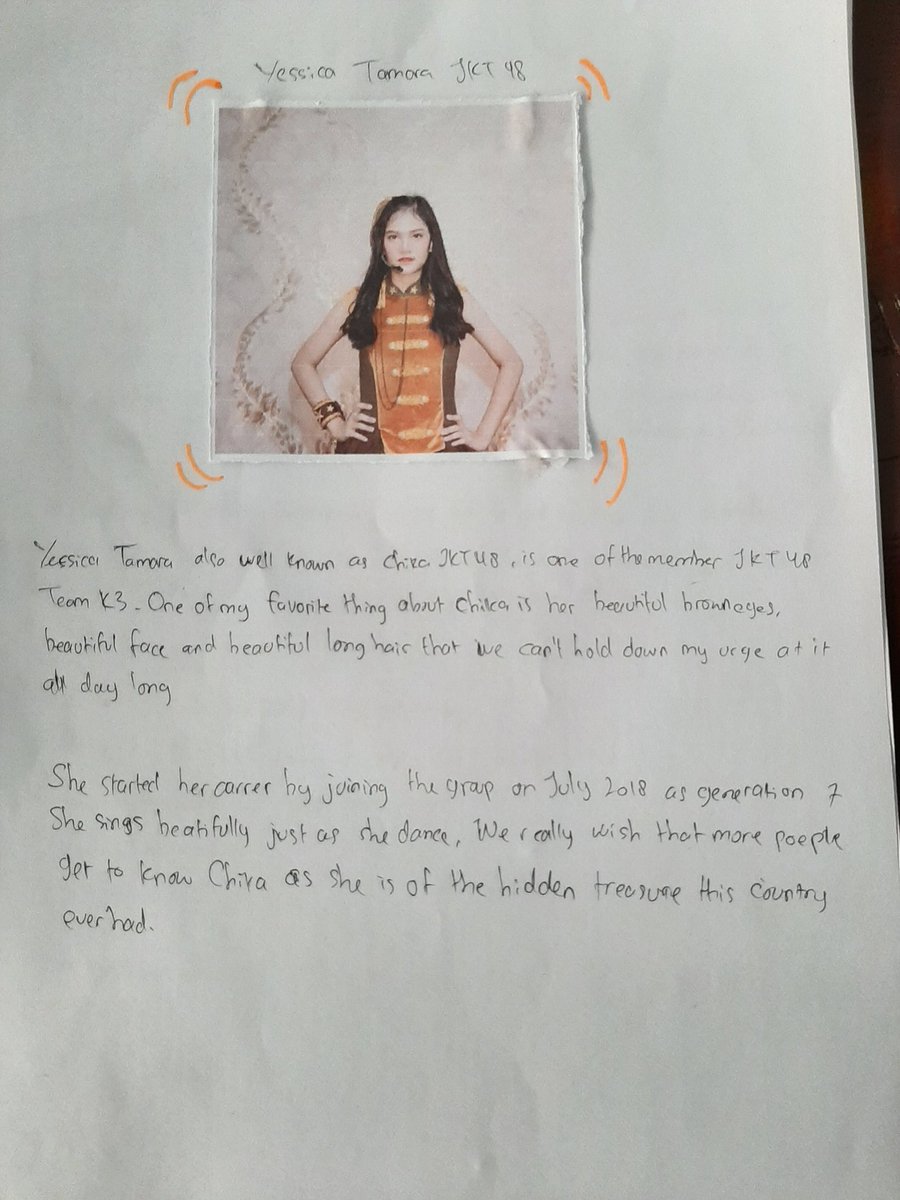 Yessica Tamara JKT 48
Yessica Tamara also well known as Chika JKT48, is one of the member JKT 48
Team K3. One of my favorite thing about Chika is her beautiful brown eyes,
beautiful face and beautiful long hair that we can't hold down my urge at it
all day long
She started her carrer by joining the group on July 2018 as generation 7
She sings beatifully just as she dance, We really wish that more poeple
get to know Chika as she is of the hidden treasure this country
ever had.